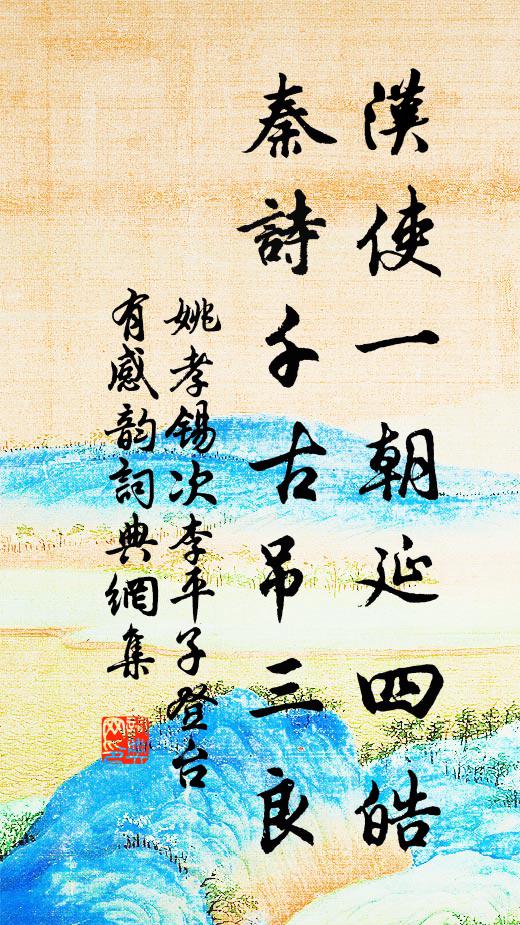 漢使一朝延四皓
秦詩千古吊三良
姚孝锡次李平子登台
有感韵詞典網集